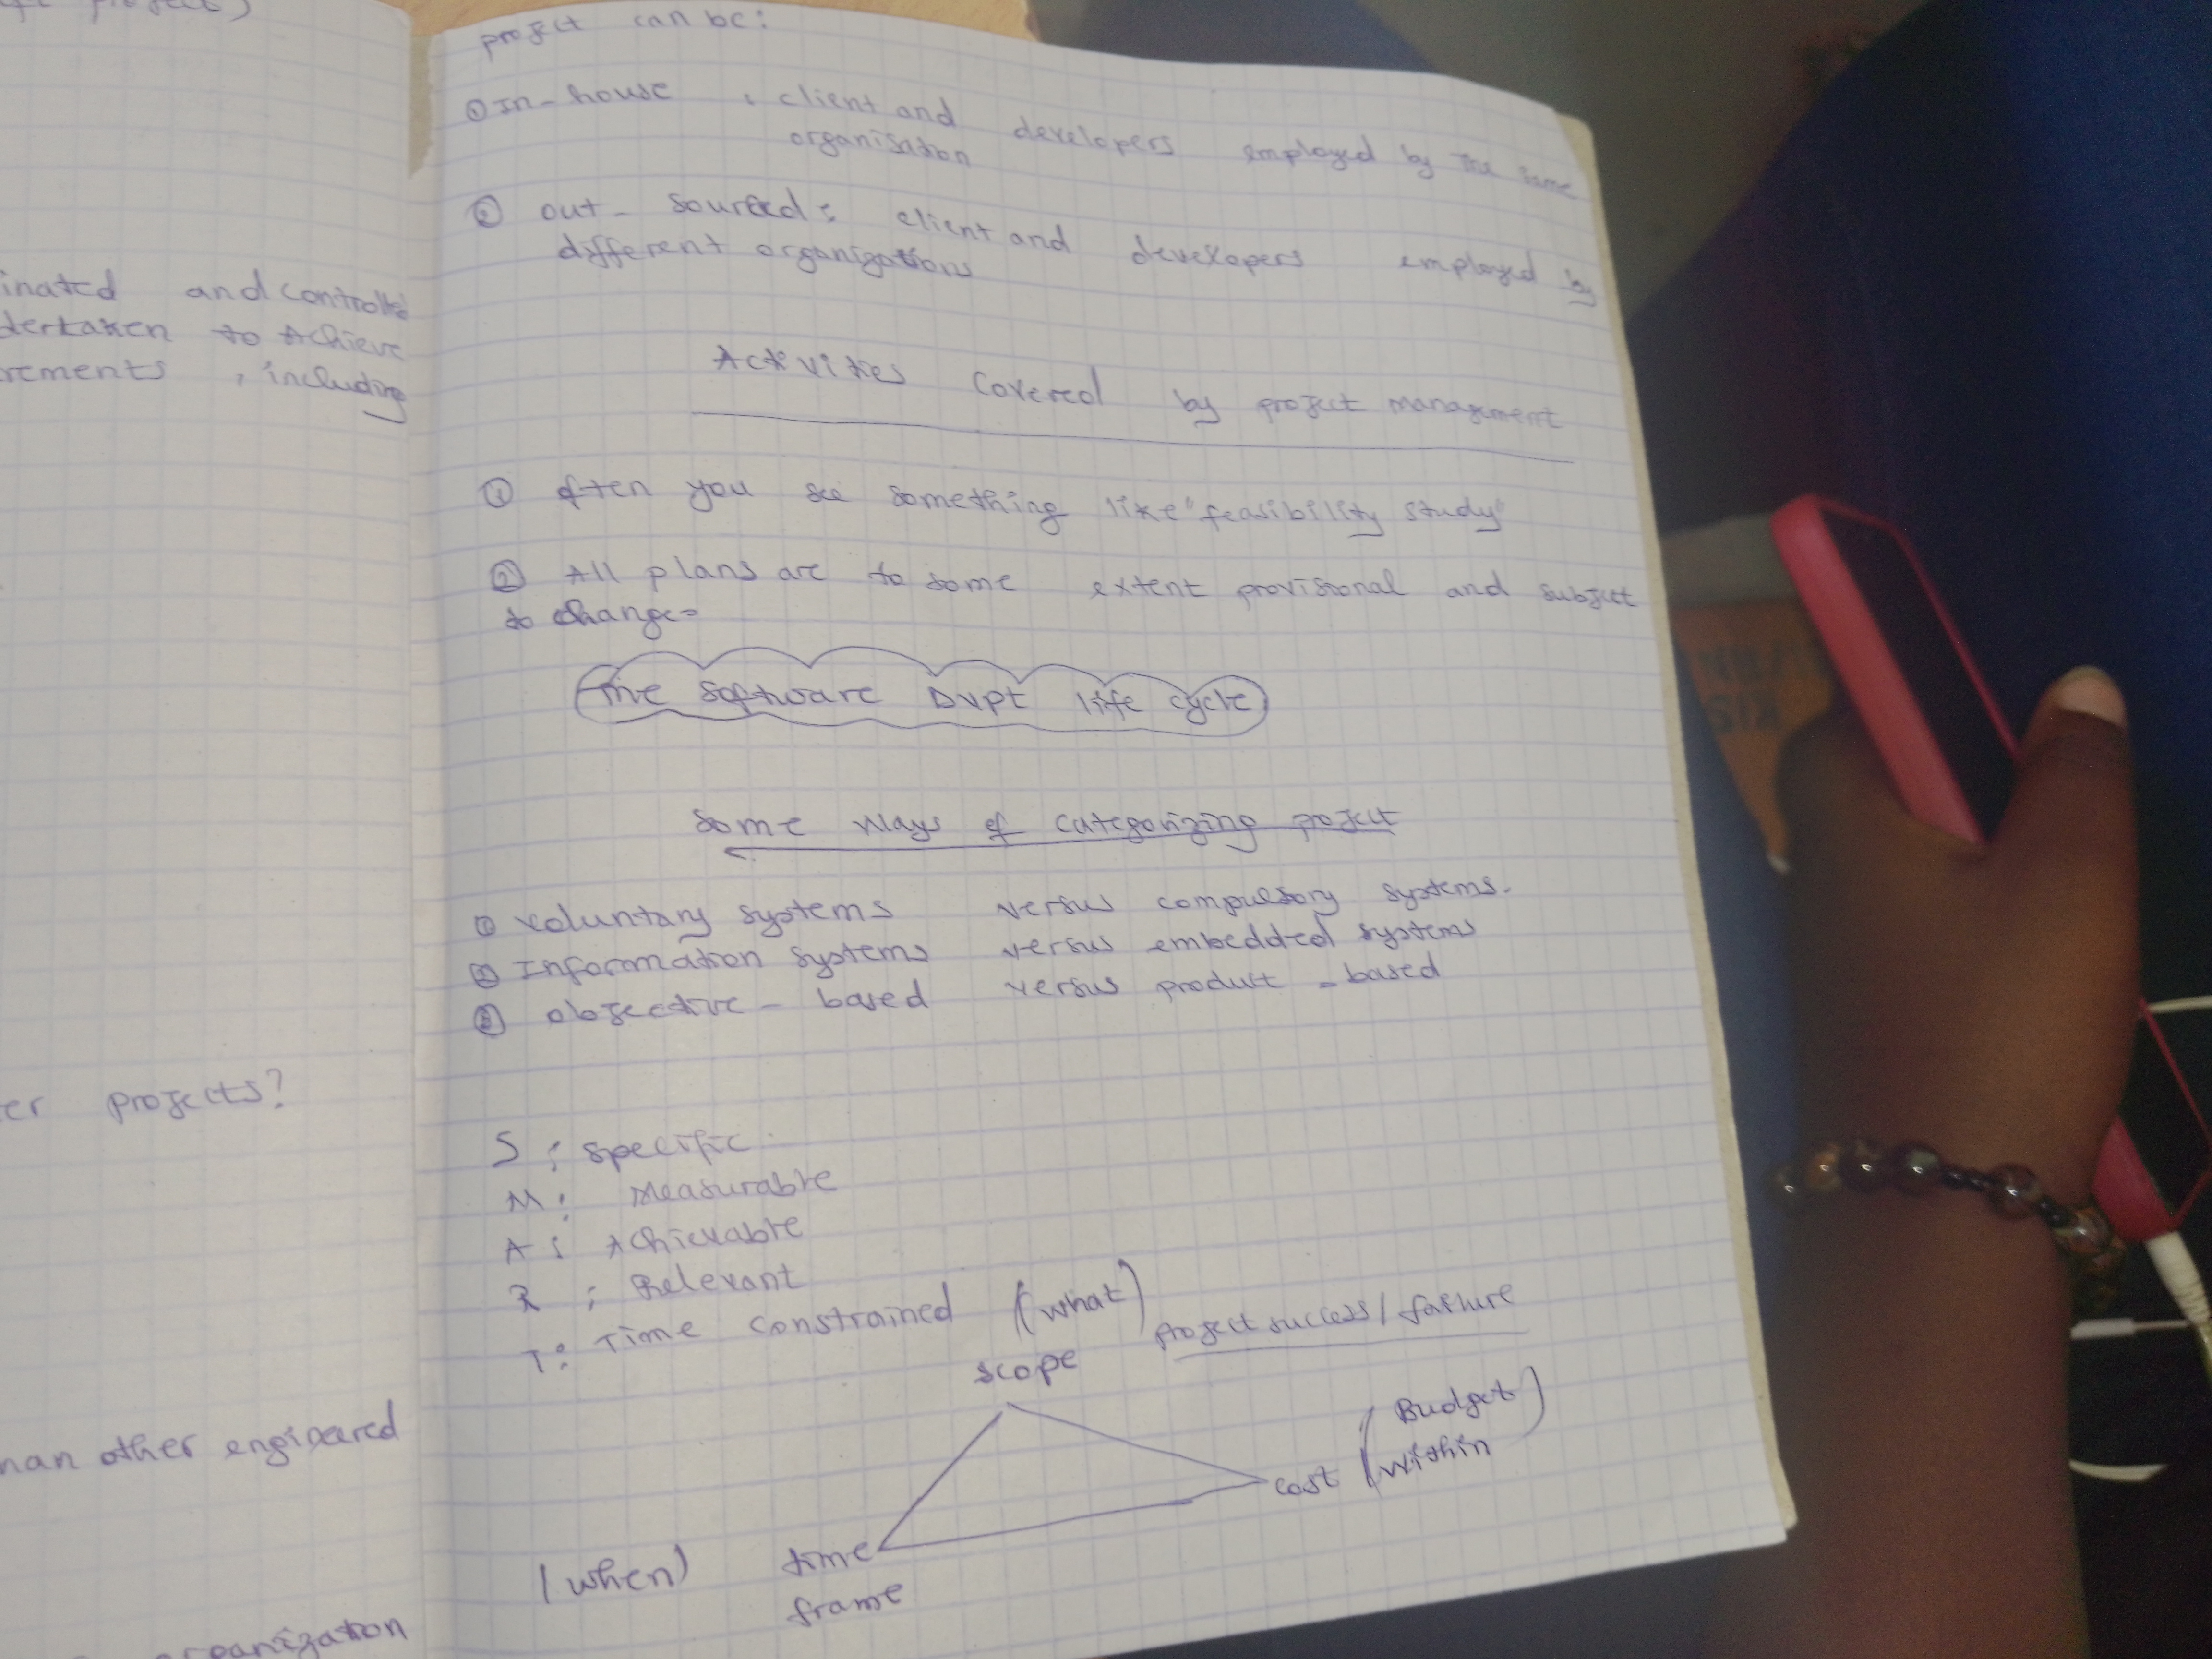 inated and controlled
dertaken to Achieve
rements, including
er projects?
han other engineered
organization
project can be:
① In-house : client and developers employed by The same
organisation
② out-sourced: client and developers employed by
different organizations
Activities Covered by project management
① often you see something like "feasibility study"
② All plans are to some extent provisional and subject
to change
The software Dvpt life cycle
Some ways of categorizing project
① voluntary systems versus compulsory systems.
② Information systems versus embedded systems
③ objective-based versus product-based
S : specific
M : Measurable
A : Achievable
R : Relevant
T : Time constrained
(what)
project success/failure
scope
(Budget)
cost (within
(when) time
frame